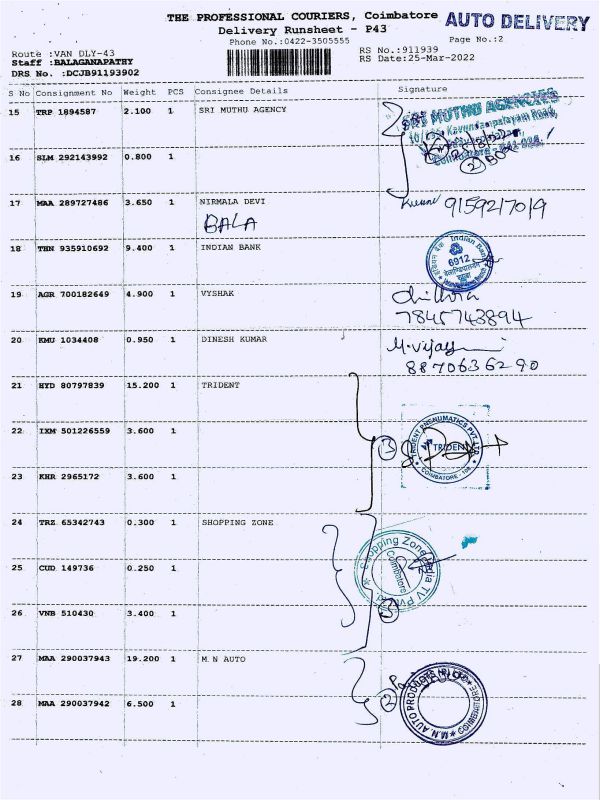 THE PROFESSIONAL COURIERS, Coimbatore AUTO DELIVERY
Delivery Runsheet - P43
Phone No.:0422-3505555 Page No.:2
Route :VAN DLY-43 RS No.:911939
Staff :BALAGANAPATHY RS Date:25-Mar-2022
DRS No. :DCJB91193902
S No Consignment No Weight PCS Consignee Details Signature
15 TRP 1894587 2.100 1 SRI MUTHU AGENCY
SRI MUTHU AGENCIES
Kavundampalayam Road,
16 SLM 292143992 0.800 1
17 MAA 289727486 3.650 1 NIRMALA DEVI 9159217019
BALA
18 THN 935910692 9.400 1 INDIAN BANK
Indian Bank
6912
19 AGR 700182649 4.900 1 VYSHAK
7845743894
20 KMU 1034408 0.950 1 DINESH KUMAR
8870636290
21 HYD 80797839 15.200 1 TRIDENT
22 IXM 501226559 3.600 1
TRIDENT PNEUMATICS PVT. LTD
TRIDENT
COIMBATORE
3
23 KHR 2965172 3.600 1
24 TRZ 65342743 0.300 1 SHOPPING ZONE
Shopping Zone India TV Pvt
Coimbatore
25 CUD 149736 0.250 1
26 VNB 510430 3.400 1
27 MAA 290037943 19.200 1 M.N AUTO
M.N. AUTO PRODUCTS (P) LTD
COIMBATORE
2
28 MAA 290037942 6.500 1